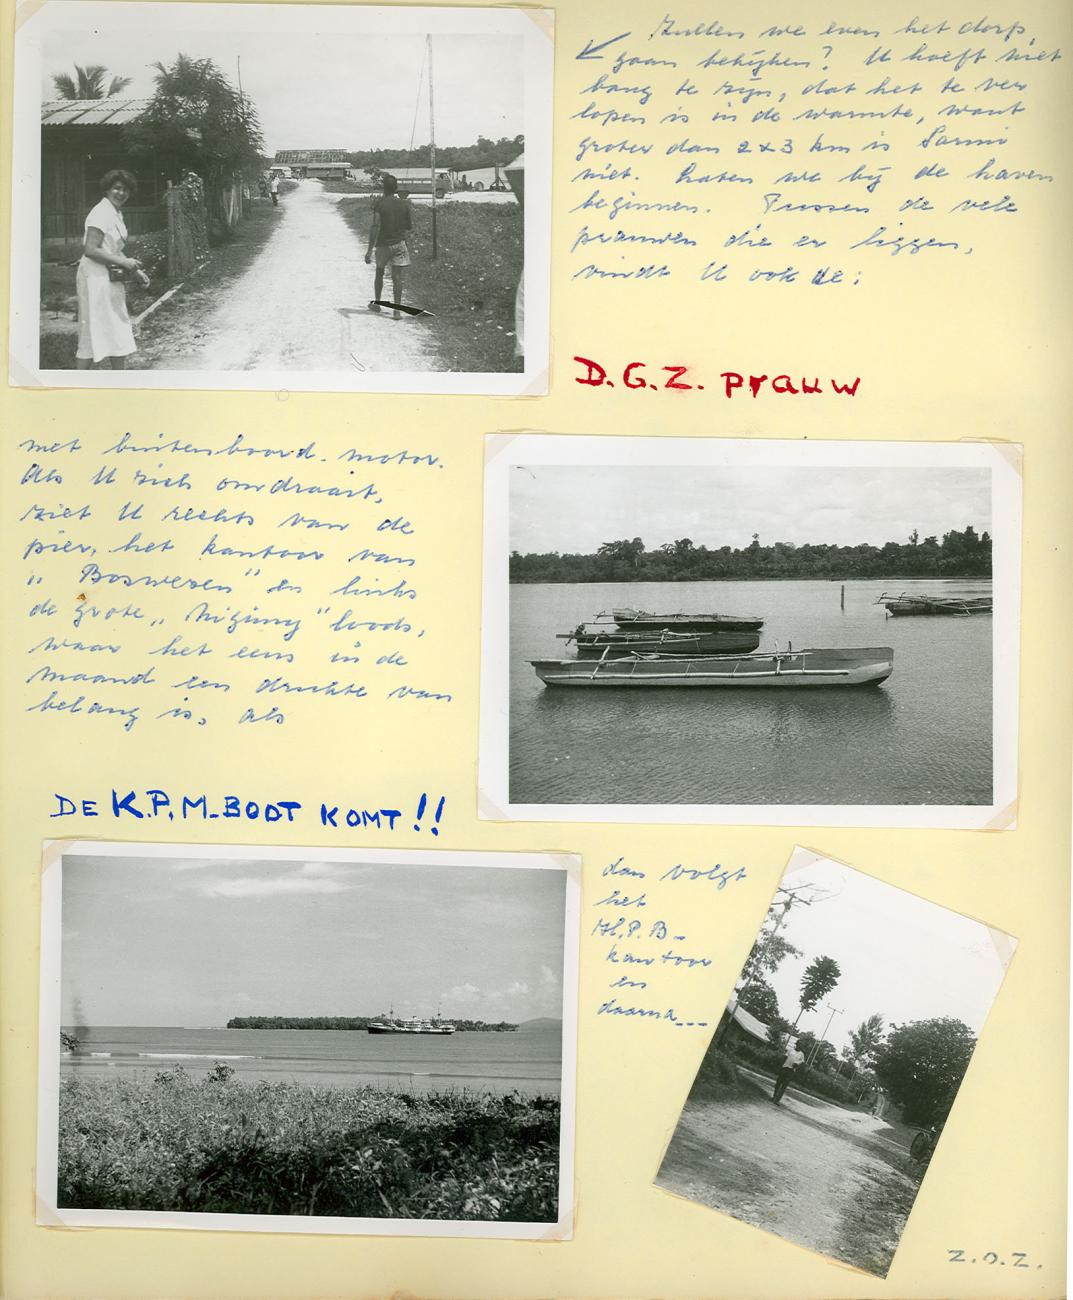 Zullen we even het dorp
gaan bekijken? U hoeft niet
bang te zijn, dat het te ver
lopen is in de warmte, want
groter dan 2 x 3 km is Sarmi
niet. Laten we bij de haven
beginnen. Tussen de vele
prauwen die er liggen,
vindt U ook de:
D.G.Z. prauw
met buitenboord-motor.
Als U zich omdraait,
ziet U rechts van de
pier, het kantoor van
„Boswezen" en links
de grote „Nigimy" loods,
waar het eens in de
maand een drukte van
belang is, als
DE K.P.M-BOOT KOMT!!
dan volgt
het
H.P.B-
kantoor
en
daarna---
Z.O.Z.